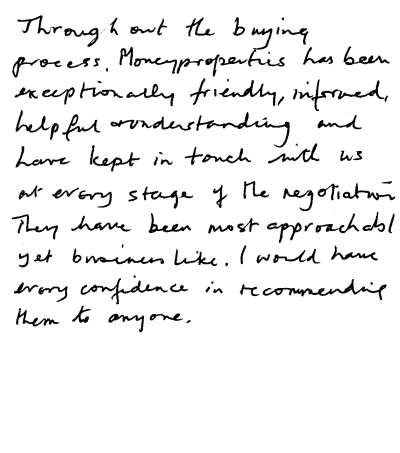 Throughout the buying
process, Moneyproperties has been
exceptionally friendly, informed,
helpful & understanding and
have kept in touch with us
at every stage of the negotiation
They have been most approachabl
yet business like. I would have
every confidence in recommending
them to anyone.